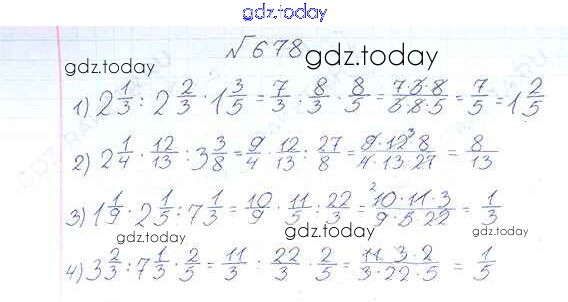 gdz.today
№678 gdz.today
gdz.today
1) 2 1/3 : 2 2/3 · 1 3/5 = 7/3 : 8/3 · 8/5 = 7·8·8/8·8·5 = 7/5 = 1 2/5
2) 2 1/4 · 12/13 : 3 3/8 = 9/4 · 12/13 : 27/8 = 9·12·8/4·13·27 = 8/13
3) 1 1/9 · 2 1/5 : 7 1/3 = 10/9 · 11/5 : 22/3 = 10·11·3/9·5·22 = 1/3
gdz.today gdz.today
4) 3 2/3 : 7 1/3 · 2/5 = 11/3 : 22/3 · 2/5 = 11·3·2/3·22·5 = 1/5